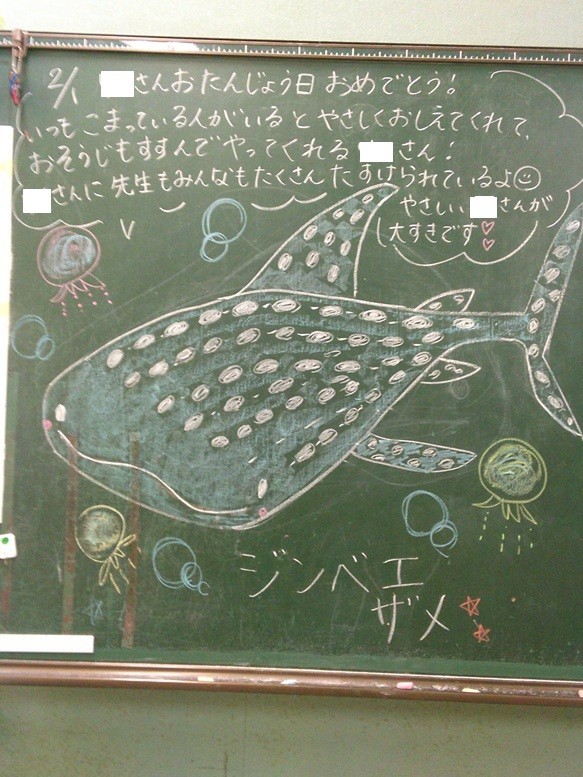 2/1 さんおたんじょう日 おめでとう!
いつもこまっている人がいるとやさしくおしえてくれて、
おそうじもすすんでやってくれる さん!
さんに 先生もみんなもたくさんたすけられているよ
やさしい さんが
大すきです
ジンベエ
ザメ